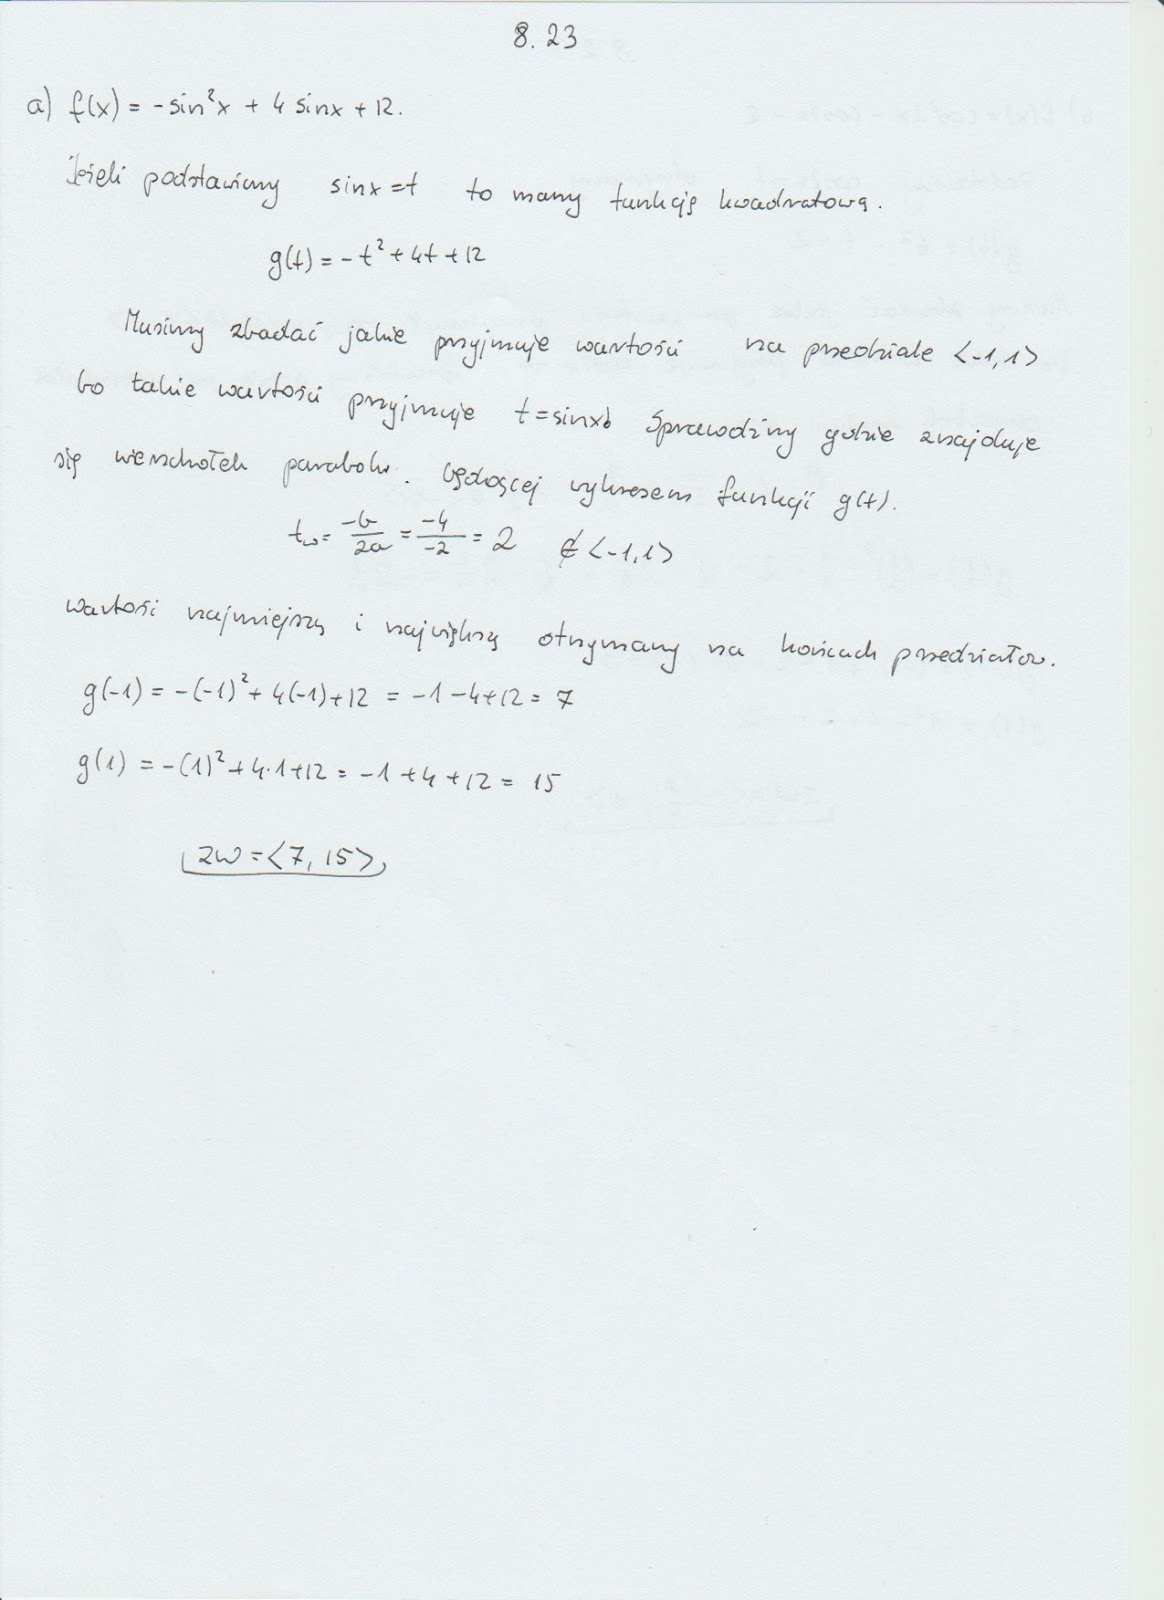 8. 23
a) f(x) = -sin²x + 4 sinx + 12.
Jeżeli podstawimy sinx = t to mamy funkcję kwadratową.
g(t) = -t² + 4t + 12
Musimy zbadać jakie przyjmuje wartości na przedziale <-1,1>
bo takie wartości przyjmuje t = sinx Sprawdzimy gdzie znajduje
się wierzchołek paraboli. będącej wykresem funkcji g(t).
t_w = -b/2a = -4/-2 = 2 ∉ <-1,1>
wartości najmniejszą i największą otrzymamy na końcach przedziałów.
g(-1) = -(-1)² + 4(-1) + 12 = -1 - 4 + 12 = 7
g(1) = -(1)² + 4·1 + 12 = -1 + 4 + 12 = 15
ZW = <7, 15>